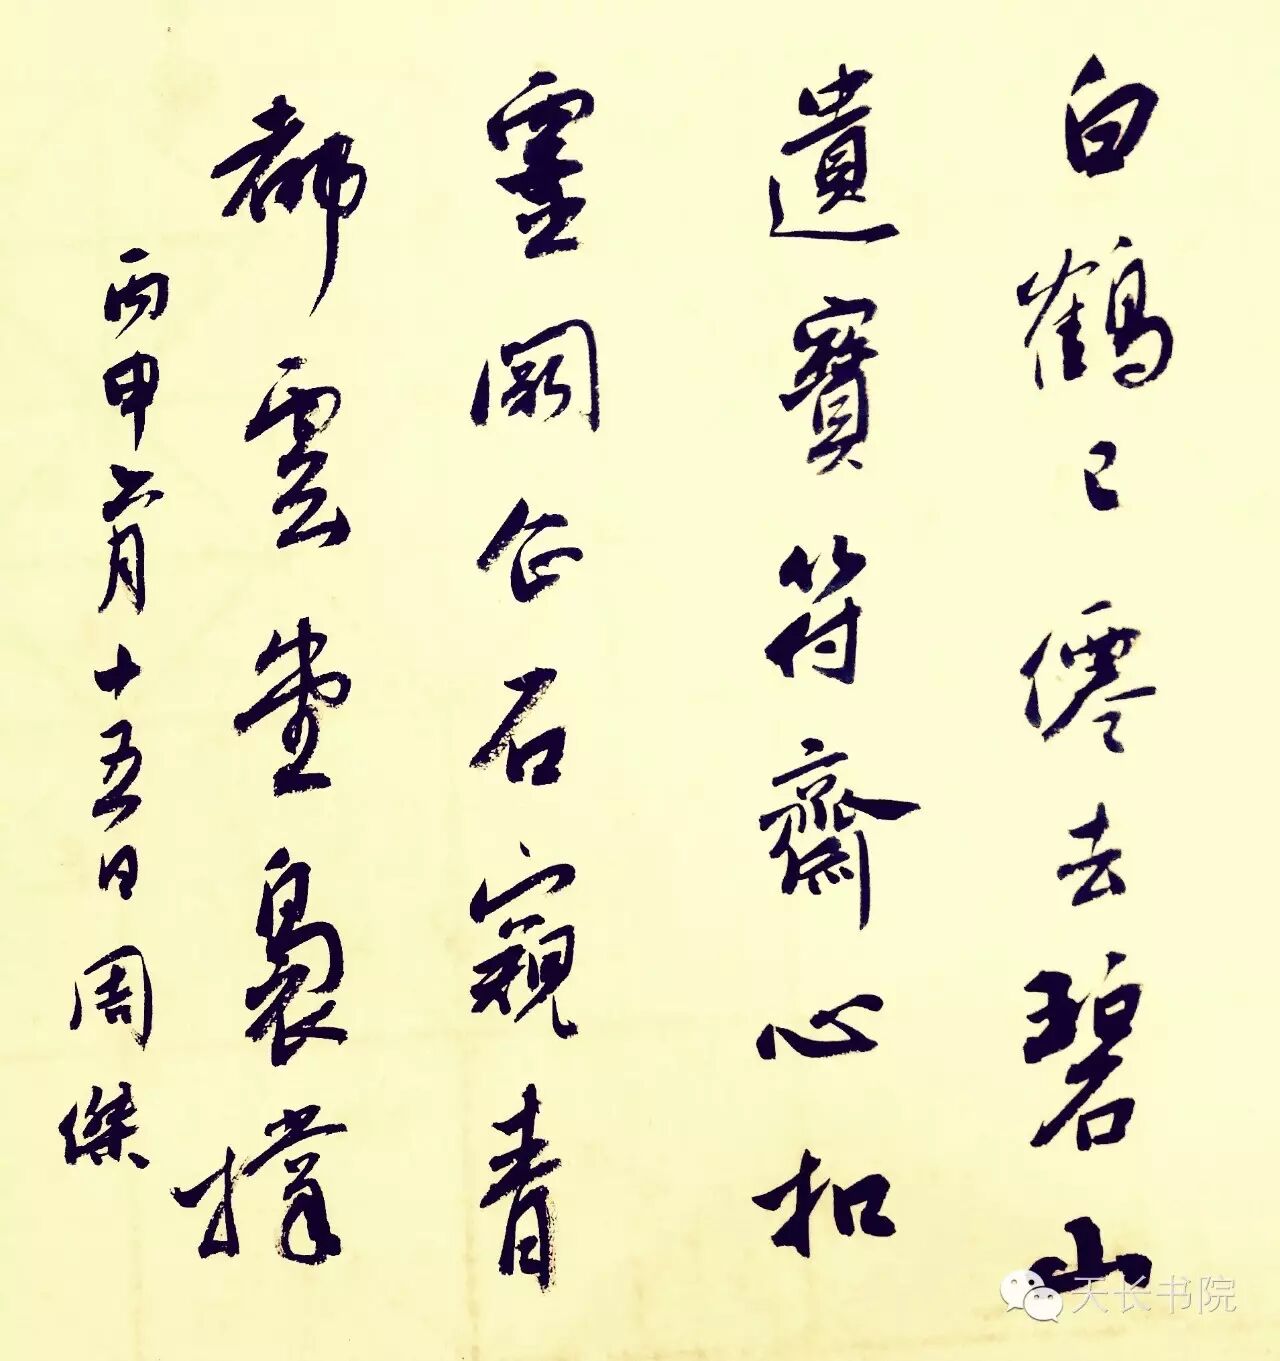 白鶴已僊去碧山
遺寶符齋心扣
靈闕企石窺青
都雲堂裊撐
丙申六月十五日周傑
天长书院